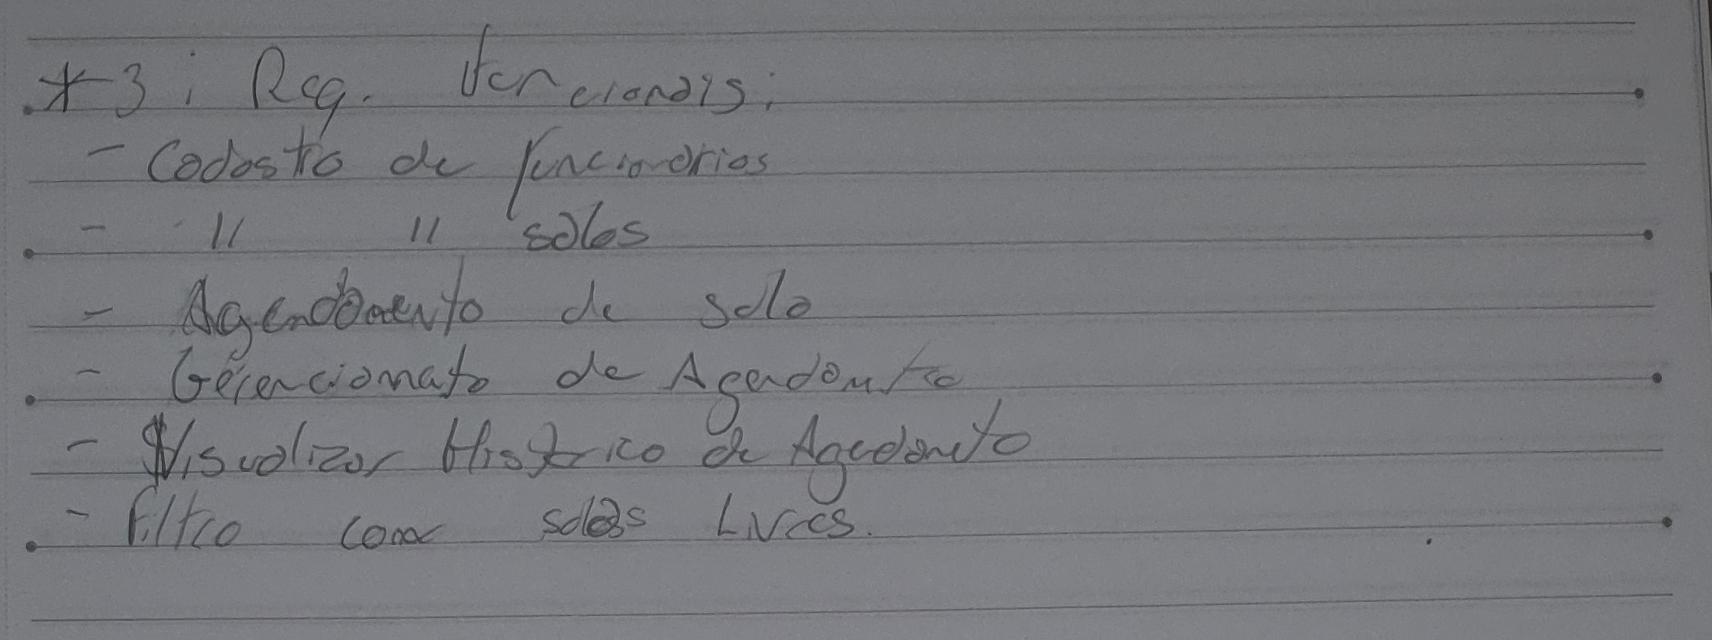 * 3: Req. Funcionais:
- Cadastro de funcionários
- " " salas
- Agendamento de sala
- Gerenciamato de Agendamto
- Visualizar Histórico de Agedamto
- Filtro com salas Livres.